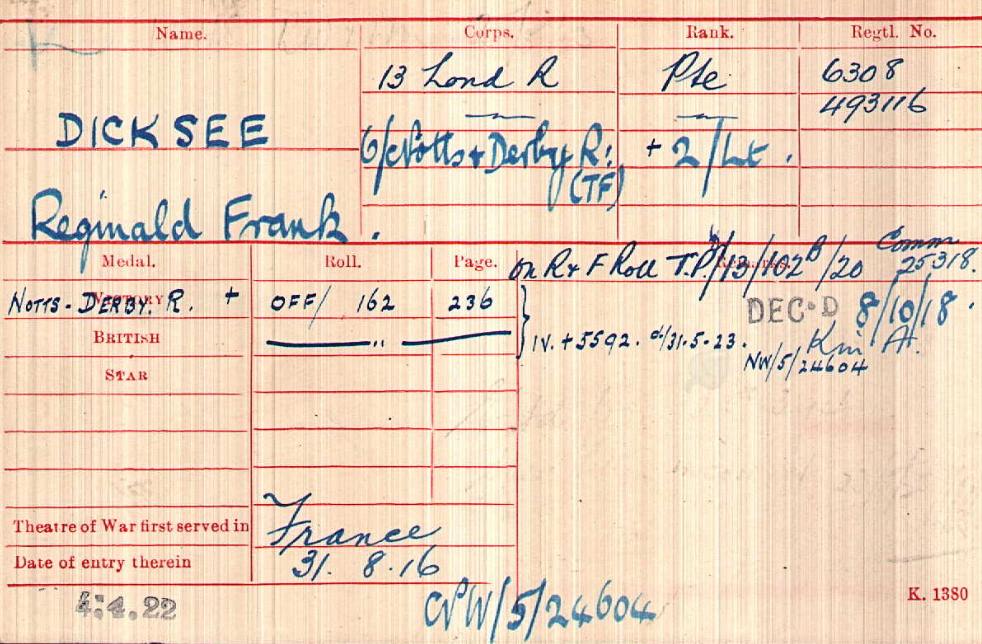 Name. Corps. Rank. Regtl. No.
13 Lond R Pte 6308
493116
DICKSEE 6/Notts + Derby R: + 2/Lt.
(TF)
Reginald Frank.
Medal. Roll. Page. on R + F Roll T.P./13/102B/20 Comm 25318.
VICTORY Notts-Derby. R. + OFF/ 162 236 DEC.D 8/10/18.
BRITISH " IV. + 5592. d/31.5.23. K in A.
NW/5/24604
STAR
Theatre of War first served in France
Date of entry therein 31.8.16
4.4.22 NW/5/24604 K. 1380